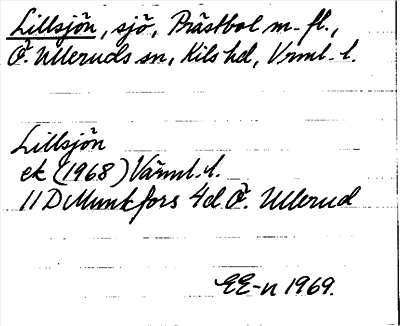 Lillsjön, sjö, Prästbol m. fl.,
Ö. Ulleruds sn, Kils hd, Vrml. l.
Lillsjön
ek (1968) Värml. l.
11D Munkfors 4d Ö. Ullerud
EE-n 1969.